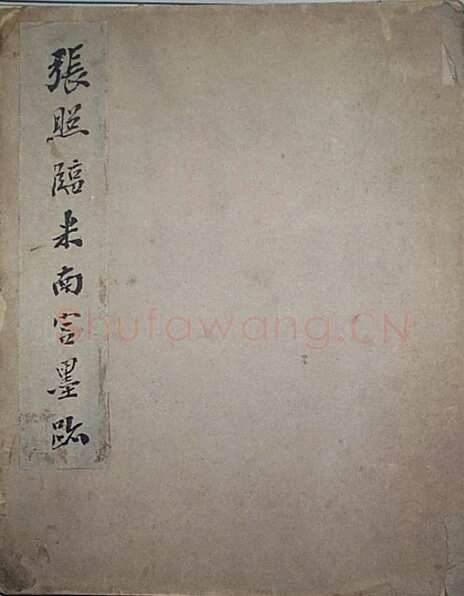 張照臨米南宮墨跡
Shufawang.CN